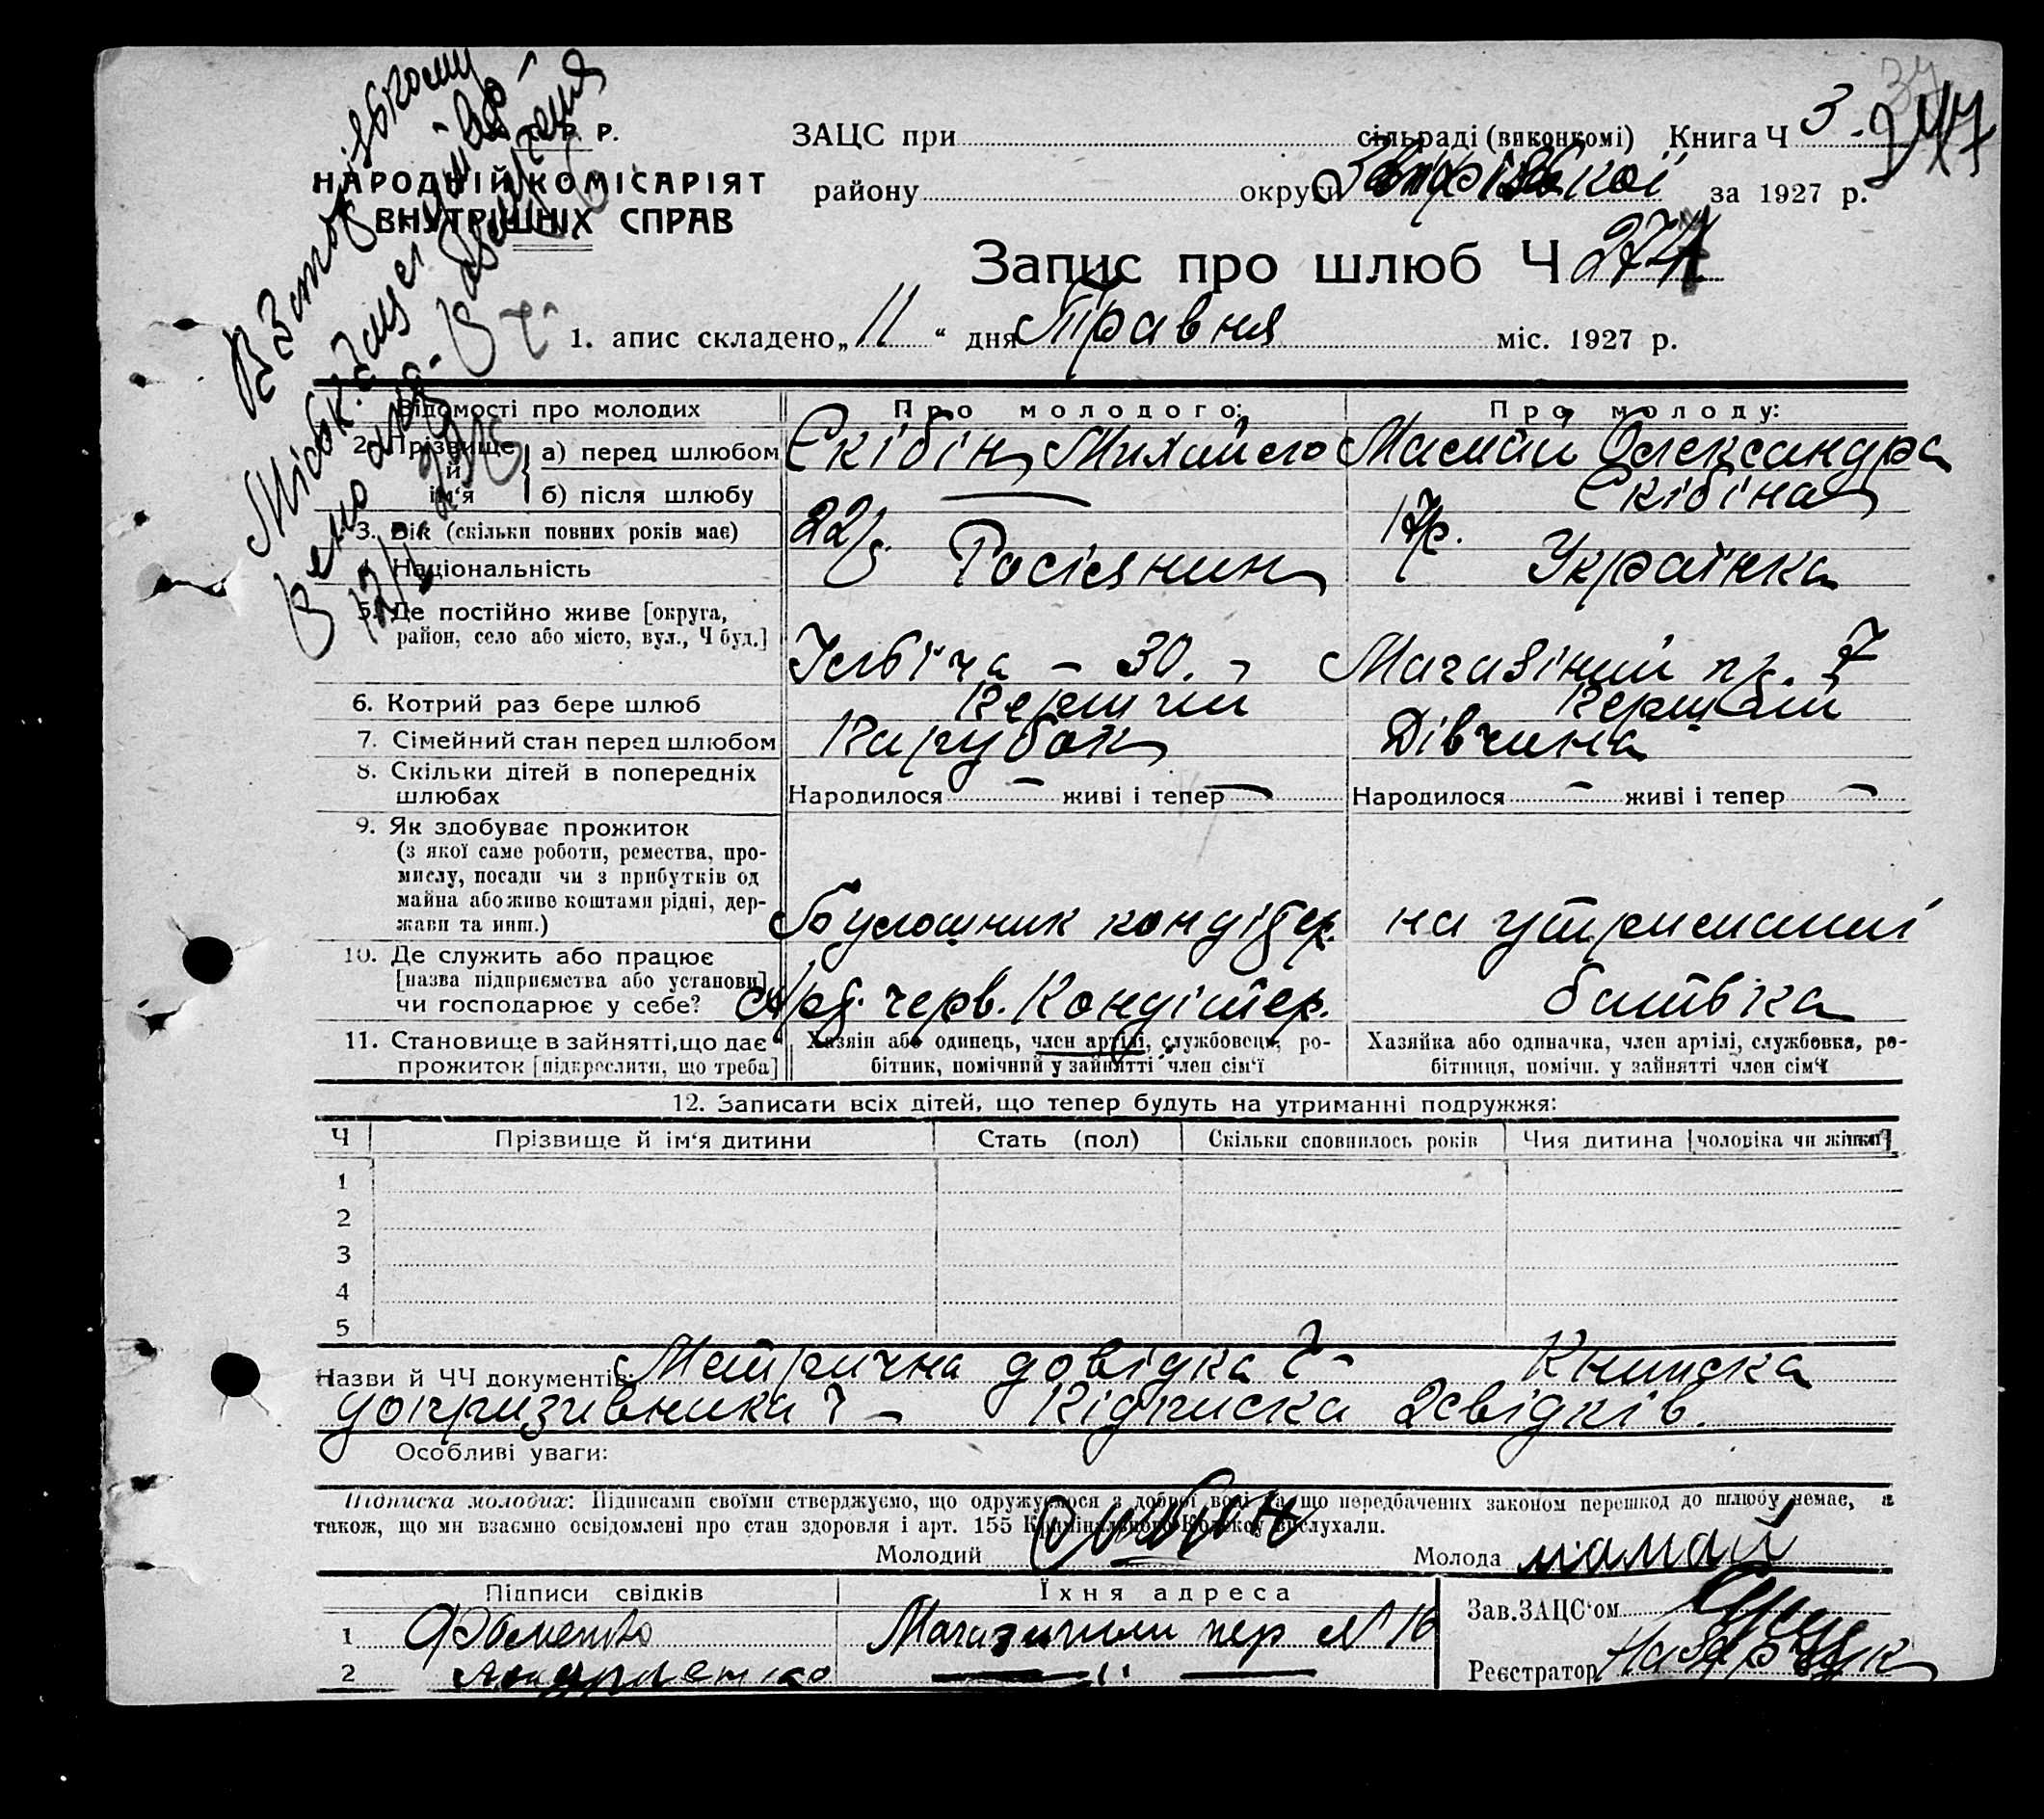 Р. Р.
НАРОДНІЙ КОМІСАРІЯТ
ВНУТРІШНІХ СПРАВ
ЗАЦС при сільраді (виконкомі) Книга Ч 3
247
району округи за 1927 р.
Запис про шлюб Ч 274
1. апис складено „11“ дня Травня міс. 1927 р.
Відомості про молодих
Про молодого:
Про молоду:
2. Прізвище й ім‘я
а) перед шлюбом
Скібін Михайло
Мамай Олександра
б) після шлюбу
Скібіна
3. Вік (скільки повних років має)
22
17р.
Національність
Росіянин
Українка
5. Де постійно живе [округа,
район, село або місто, вул., Ч буд.]
Ілвіча – 30. –
Магазіний пр. 7
6. Котрий раз бере шлюб
Перший
Перший
7. Сімейний стан перед шлюбом
Парубок
Дівчина
8. Скільки дітей в попередніх
шлюбах
Народилося – живі і тепер –
Народилося – живі і тепер –
9. Як здобуває прожиток
(з якої саме роботи, ремества, про-
мислу, посади чи з прибутків од
майна або живе коштами рідні, дер-
жави та инш.)
Булошник кондітер.
на утриманні
10. Де служить або працює
[назва підприємства або установи]
чи господарює у себе?
черв. Кондітер.
батька
11. Становище в зайнятті, що дає
прожиток [підкреслити, що треба]
Хазяін або одинець, член артілі, службовець, ро-
бітник, помічний у зайнятті член сім‘ї
Хазяйка або одиначка, член артілі, службовка, ро-
бітниця, помічн. у зайнятті член сім‘ї
12. Записати всіх дітей, що тепер будуть на утриманні подружжя:
Ч
Прізвище й ім‘я дитини
Стать (пол)
Скільки сповнилось років
Чия дитина [чоловіка чи жінки]
1
2
3
4
5
Назви й ЧЧ документів: Метрична довідка Ч – Книжка
допризивника Ч – Підписка 2 свідків.
Особливі уваги:
Підписка молодих: Підписами своїми стверджуємо, що одружуємося з доброї волі та що передбачених законом перешкод до шлюбу немає, а
також, що ми взаємно освідомлені про стан здоровля і арт. 155 Крімінального Кодексу вислухали.
Молодий
Молода мамай
Підписи свідків
Їхня адреса
Зав. ЗАЦС‘ом
1 Фоменко
Магазинний пер № 16
2
– " –
Реєстратор